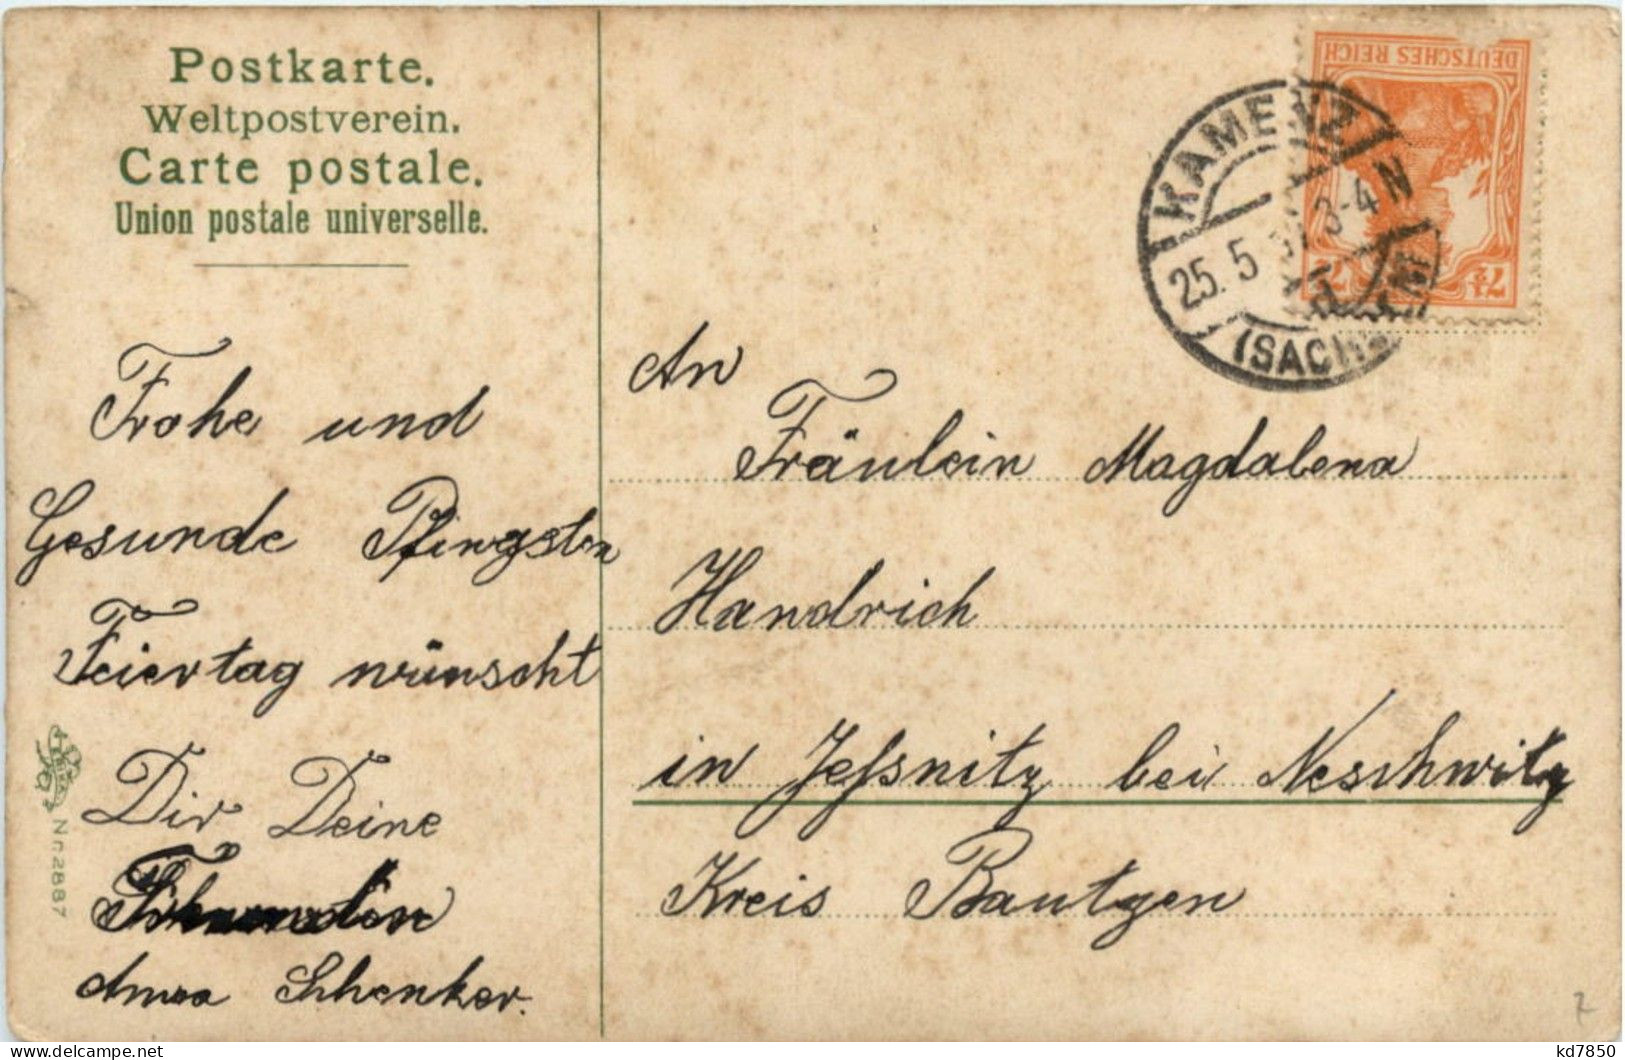 Postkarte.
Weltpostverein.
Carte postale.
Union postale universelle.
Frohe und
Gesunde Pfingsten
Feiertag wünscht
Dir Deine
Freundin
Anna Schenker.
Nn2887
DEUTSCHES REICH
7½ 7½
KAMENZ
25.5 17 3-4 N
(SACHSEN)
An
Fräulein Magdalena
Handrich
in Jeßnitz bei Neschwitz
Kreis Bautzen
kd7850